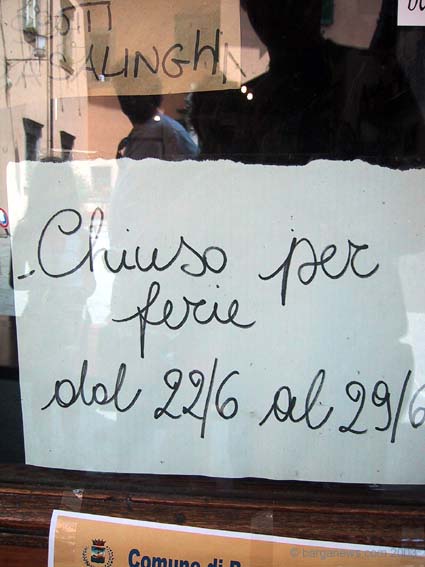 CASALINGHI
Chiuso per
ferie
dal 22/6 al 29/6
Comune di B
© barganews.com 2003